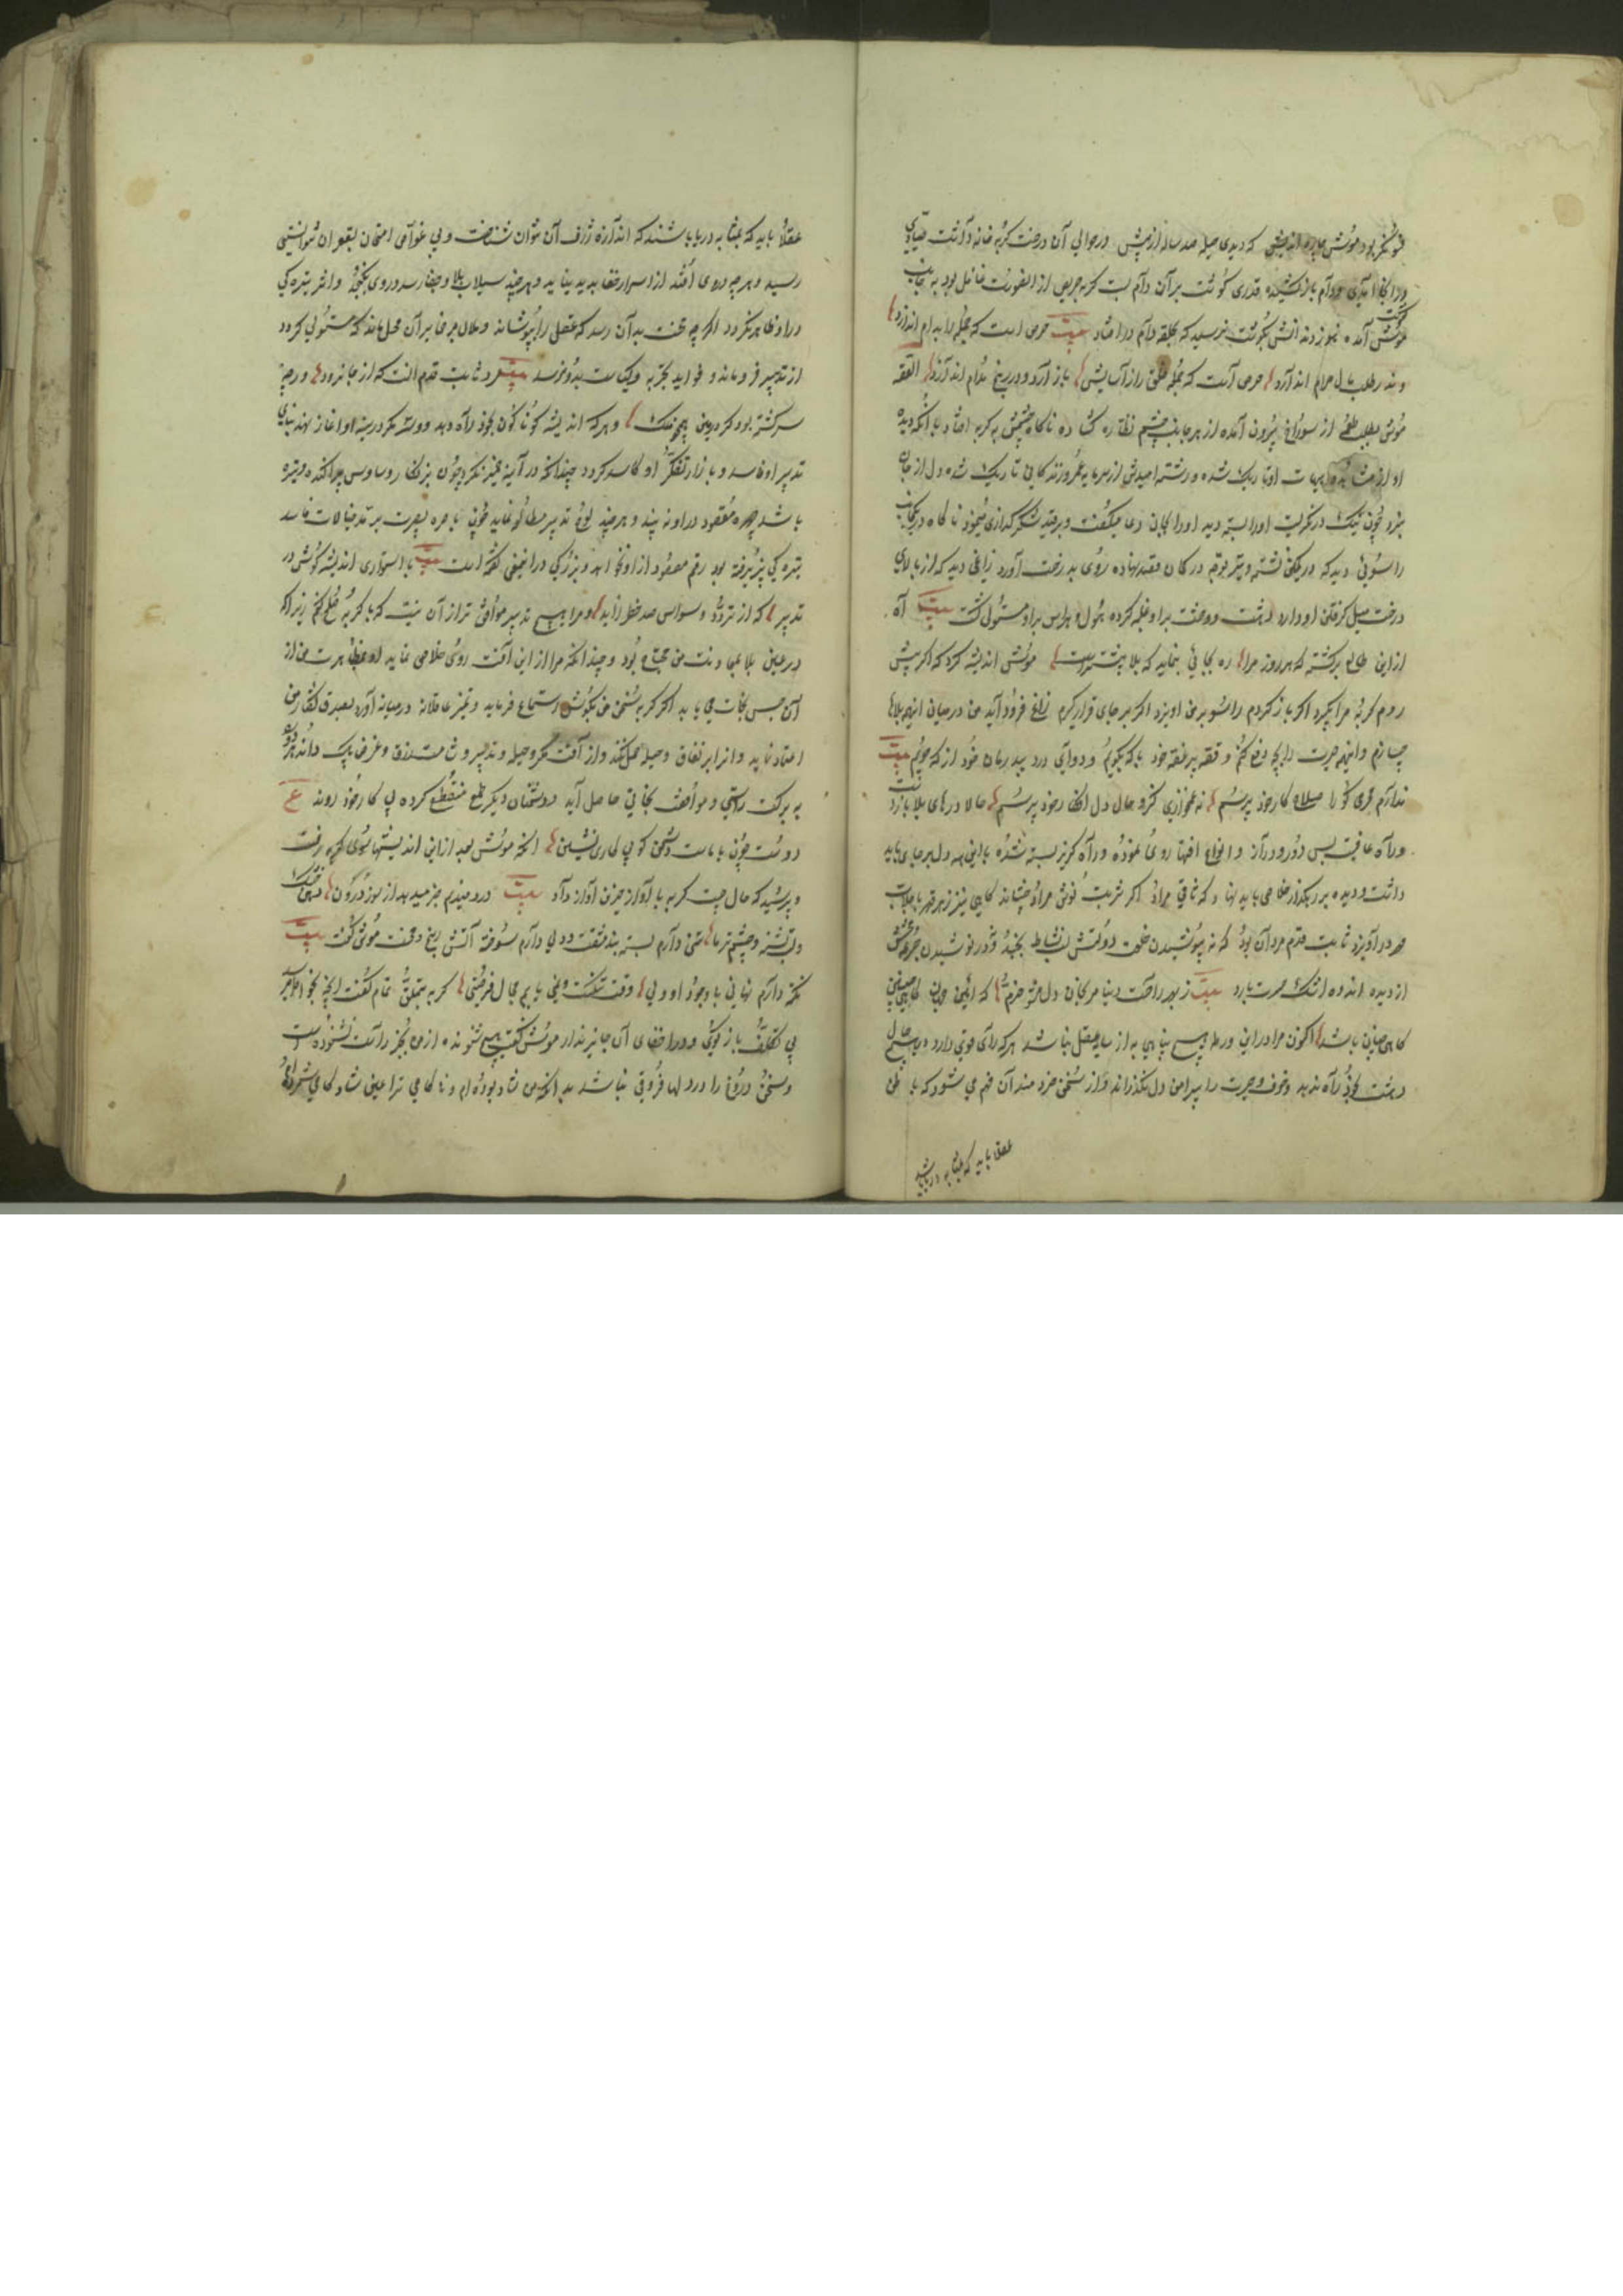 که دیدی حیله صد ساله از پیش در حوالی آن درخت گربه خانه داشت
قدری گوشت بر آن دام بست گربه حریص از الصورت غافل بود به جانب
گوشت آمده هنوز دندانش بگوشت نرسیده که بحلقه دام در افتاد بیت حرص است که جمله را بدام اندازد
وندر طلب مال حرام اندازد حرص آنست که جمله خلق را ز آسایش باز آرد و در رنج مدام اندازد القصه
موش بطلب طعمه از سوراخ بیرون آمده از هر جانب چشم ناگاه چشمش به گربه افتاد با آنکه دیده
شده و رشته امیدش از سرمایه عمر و زندگانی تاریک شده دل از جان
چون نیک در نگریست او را بسته دید او را بجان دعا میگفت و شکرگذاری مینمود ناگاه در یکجانب
راسوئی دید که در کمین نشسته و تیر توجه در کمان قصد نهاده روی به درخت آورد زاغی دید که از بالای
درخت میل گرفتن او دارد دهشت و وحشت بر او غلبه کرده هول و هراس بر او مستولی گشت بیت آه
از این طالع برگشته که هر روز مرا ره بجائی بنماید که بلا بیشتر است موش اندیشه کرد که اگر پیش
روم گربه مرا بگیرد اگر باز گردم راسو بر من آویزد اگر بر جای قرار گیرم زاغ فرود آید من در میان اینهمه بلاها
چه سازم و اینهمه حیرت را بچه دفع کنم و قصه پر غصه خود با که بگویم و دوای درد بیدرمان خود از که جویم بیت
ندارم محرمی کو را صلاح کار خود پرسم نه غمخواری کزو حال دل افکار خود پرسم حالا درهای بلا باز است
و راه عافیت بس دور و دراز و انواع آفتها روی نموده و راه گریز بسته شده با این همه دل بر جای باید
داشت و دیده بر رهگذر خلاصی باید نهاد که ساقی مراد اگر شربت نوش مراد چشاند گاهی نیز زهر قهر
در آمیزد ثابت قدم مرد آن بود که نه بپوشیدن خلعت دولتش نشاط بخندد و نه در نوشیدن جرعه
از دیده اندوه اشک حسرت بارد بیت ز بهر راحت دنیا مرنجان دل مشو خرم که آئین جهان گاهی چنین
گاهی چنان باشد اکنون مرا در این ورطه هیچ پناهی به از سایه عقل نباشد هر که رای قوی دارد در هیچ حال
دهشت بخود راه ندهد و خوف و حیرت را پیرامن دل نگذراند و از سخن خردمند آن فهم می شود که باطن
عقلا باید که بمثابه دریا باشد
عقلا باید که بمثابه دریا باشند که اندازه ژرف آن توان شناخت و بی غواص امتحان بقعر آن نتوانستی
رسید و هرچه در وی افتد از اسرار خفا پدید نیاید و هر چند سیلاب بلا و جفا رسد در وی بگنجد و اثر تیرگی
در او ظاهر نگردد اگرچه محنت بدان رسد که عقل را بپوشاند و ملال بر من بر آن محل ماند که مستولی گردد
از تدبیر فرو ماند و فواید تجربه و کیاست بدو نرسد بیت مرد ثابت قدم آنست که از جا نرود ورچه
سرگشته بود گرد زمین همچو فلک و هر که اندیشه گوناگون بخود راه دهد و وسوسه در سینه او آغاز نهد بنای
تدبیر او فاسد و بازار تفکر او کاسد گردد چندانکه در آینه تمیز نگرد چون بزنگار وساوس پراکنده و تیره
باشد چهره مقصود در او نه بیند و هر چند لوح تدبیر مطالعه نماید چون باصره بصیرت بر مد خیالات فاسد
تیرگی پذیرفته بود رقم مقصود از او نخواند و بزرگی در این معنی گفته است بیت با استواری اندیشه کوش در
تدبیر که از تردد و وسواس صد خلل زاید و مرا هیچ تدبیر موافق تر از آن نیست که با گربه صلح کنم زیرا که
در عین بلا بمعاونت من محتاج بود و چندانکه مرا از این آفت روی خلاصی نماید او بمظاهرت من از
آن حبس نجات می یابد اگر گربه سخن من بگوش استماع فرماید و تمیز عاقلانه در میانه آورد بصدق گفتار من
اعتماد نماید و آنرا بر نفاق و حیله حمل نکند و از آفت مکر و حیله و تدبیر و شامت زرق و غرض پاک داند هر دو
به برکت راستی و موافقت نجاتی حاصل آید دوستان دیگر طمع منقطع کرده پی کار خود روند ع
دوست چون با ماست دشمن گو پی کاری نشین القصه موش بعد از این اندیشها سوی گربه رفت
و پرسید که حال چیست گربه با آواز حزین آواز داد بیت دردمندم خبر میدهد از سوز درون دهن خشک
و لب تشنه و چشم تر ما تنی دارم بسته بند مشقت و دلی دارم سوخته آتش رنج و محنت موش گفت بیت
نکته دارم نهانی با وجود او ولی وقت تنگست و نمی یابم مجال فرصتی گربه بتملق تمام گفت آنچه بخاطر میرسد
بی تکلف باز گوی و در اخفای آن جایز ندار موش گفت هیچ شنونده از من بجز راست نشنوده است
و سخن دروغ را در دلها فروغی نباشد بدانکه من شاد بوده ام و ناکامی ترا عین شادکامی شمرده